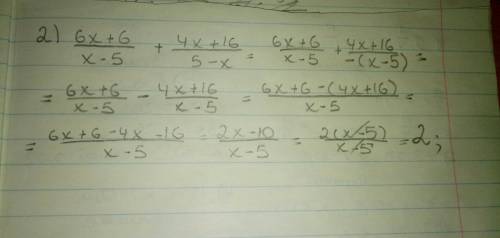 2) (6x+6)/(x-5) + (4x+16)/(5-x) = (6x+6)/(x-5) + (4x+16)/(-(x-5)) =
= (6x+6)/(x-5) - (4x+16)/(x-5) = (6x+6-(4x+16))/(x-5) =
= (6x+6-4x-16)/(x-5) = (2x-10)/(x-5) = (2(x-5))/(x-5) = 2;